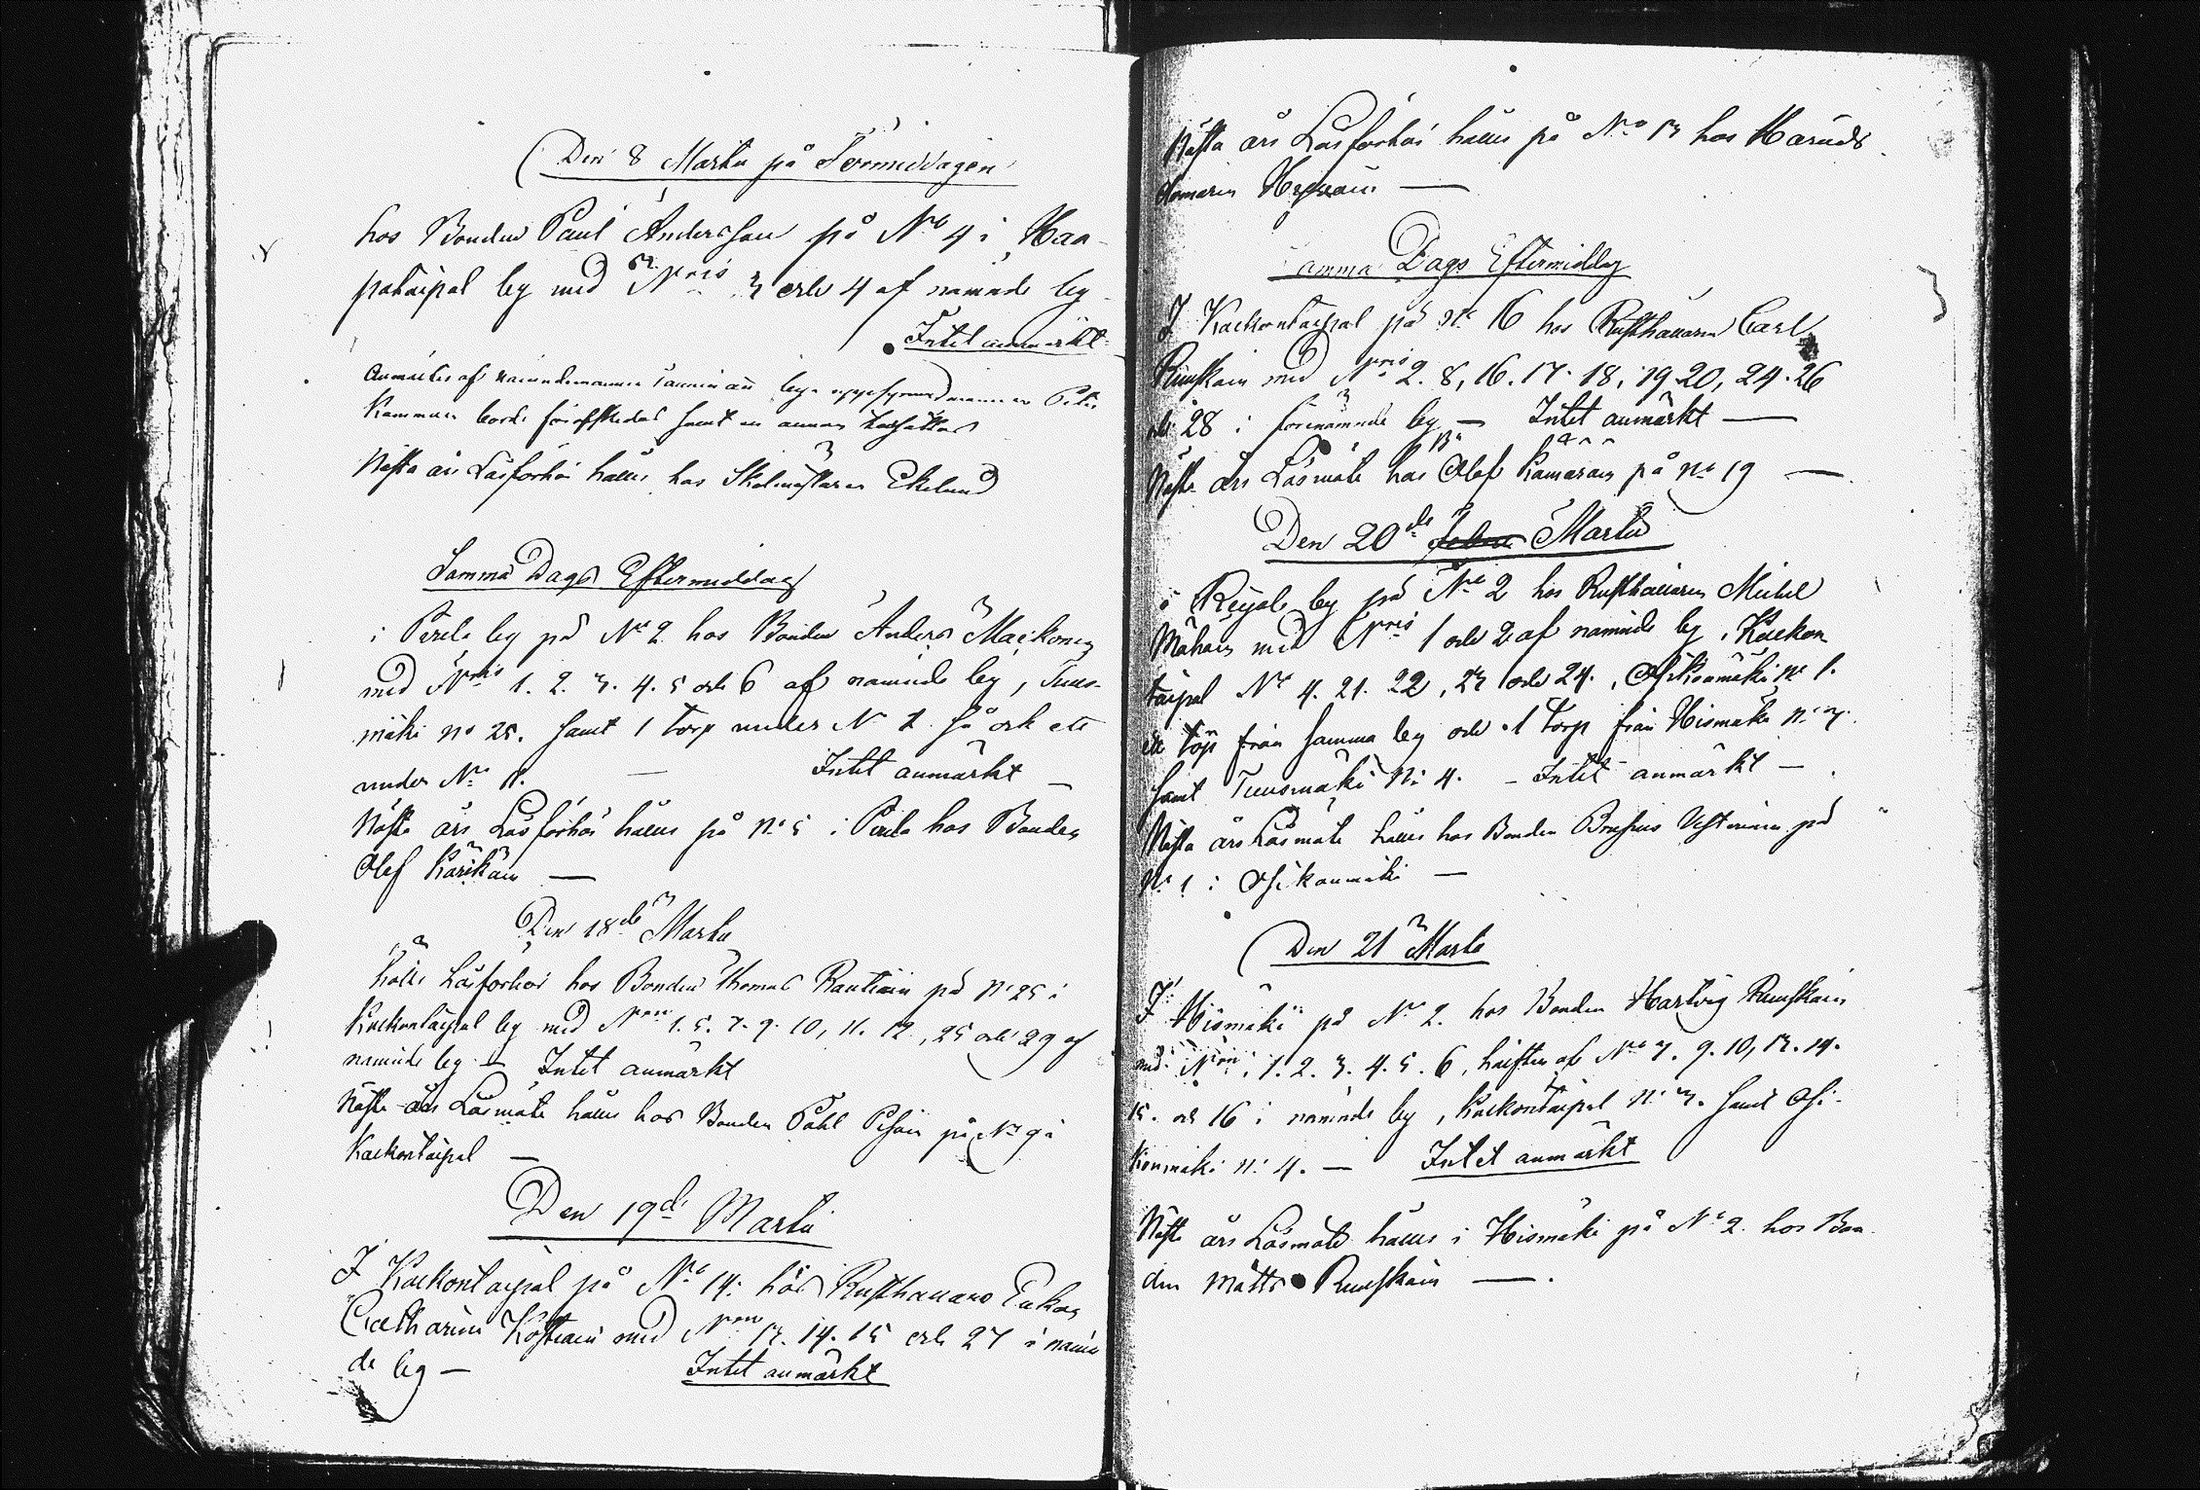 Den 8 Martii på Förmiddagen
hos Bonden Paul Andersson på No 4 i Haa-
pataipal by med Nris 3 och 4 af nämnde by
Intet anmärkt
af nämndemannen
Kammunen borde samt en annan
Nästa års Läsförhör hålles hos Skolmästaren Ekelund
Samma Dags Eftermiddag
i Perela by på No 2 hos Bonden Anders Maikonen
med Nris 1. 2. 3. 4. 5 och 6 af nämnde by, Tuus-
mäki no 25. samt 1 torp under N 2 så ock ett
under No 11. — Intet anmärkt —
Nästa års Läsförhör hålles på No 5 i Perela hos Bonden
Olef Kärikäin —
Den 18de Martii
hölls Läsförhör hos Bonden Thomas Rautiain på No 25 i
Kaekontaipal by med Nron 1. 5. 7. 9. 10, 11. 12, 25 och 29 af
nämnde by — Intet anmärkt
Näste års Läsmöte hålles hos Bonden Påhl Pesoin på No 9 i
Kaekontaipal —
Den 19de Martii
I Kaekontaipal på No 14. hos Rusthållars Enkan
Catharina Kostiain med Nron 13. 14. 15 och 27 i nämn
de by — Intet anmärkt
Nästa års Läsförhör hålles på No 13 hos Härads
domaren —
Samma Dags Eftermiddag
I Kaekontaipal på No 16 hos Rusthållaren Carl
Ruuskain med Nris 2. 8, 16. 17. 18, 19. 20, 24. 26
och 28 i förenämnde by — Intet anmärkt —
Näste års Läsmöte hos Olef Kämäräin på No 19 —
Den 20de Febru Martii
i Reijola by på No 2 hos Rusthållaren Michel
Mähöin med Nris 1 och 2 af nämnde by, Kaekon
taipal No 4. 21. 22, 23 och 24., Osikonmäki No 1.
ett torp från samma by och 1 Torp från Hiismäki No 7.
samt Tuusmäki No 4. — Intet anmärkt —
Nästa års Läsmöte hålles hos Bonden på
No 1 i Osikonmäki —
Den 21 Martii
I Hiismäki på No 2. hos Bonden Hartvig Ruuskain
med Nron 1. 2. 3. 4. 5. 6, hälften af No 7. 9. 10, 13. 14.
15. och 16 i nämnde by, Kaekontaipal No 3. samt Osi-
konmäki No 4. — Intet anmärkt
Näste års Läsmöte hålles i Hiismäki på No 2 hos Bon
den Matts Ruuskain —.